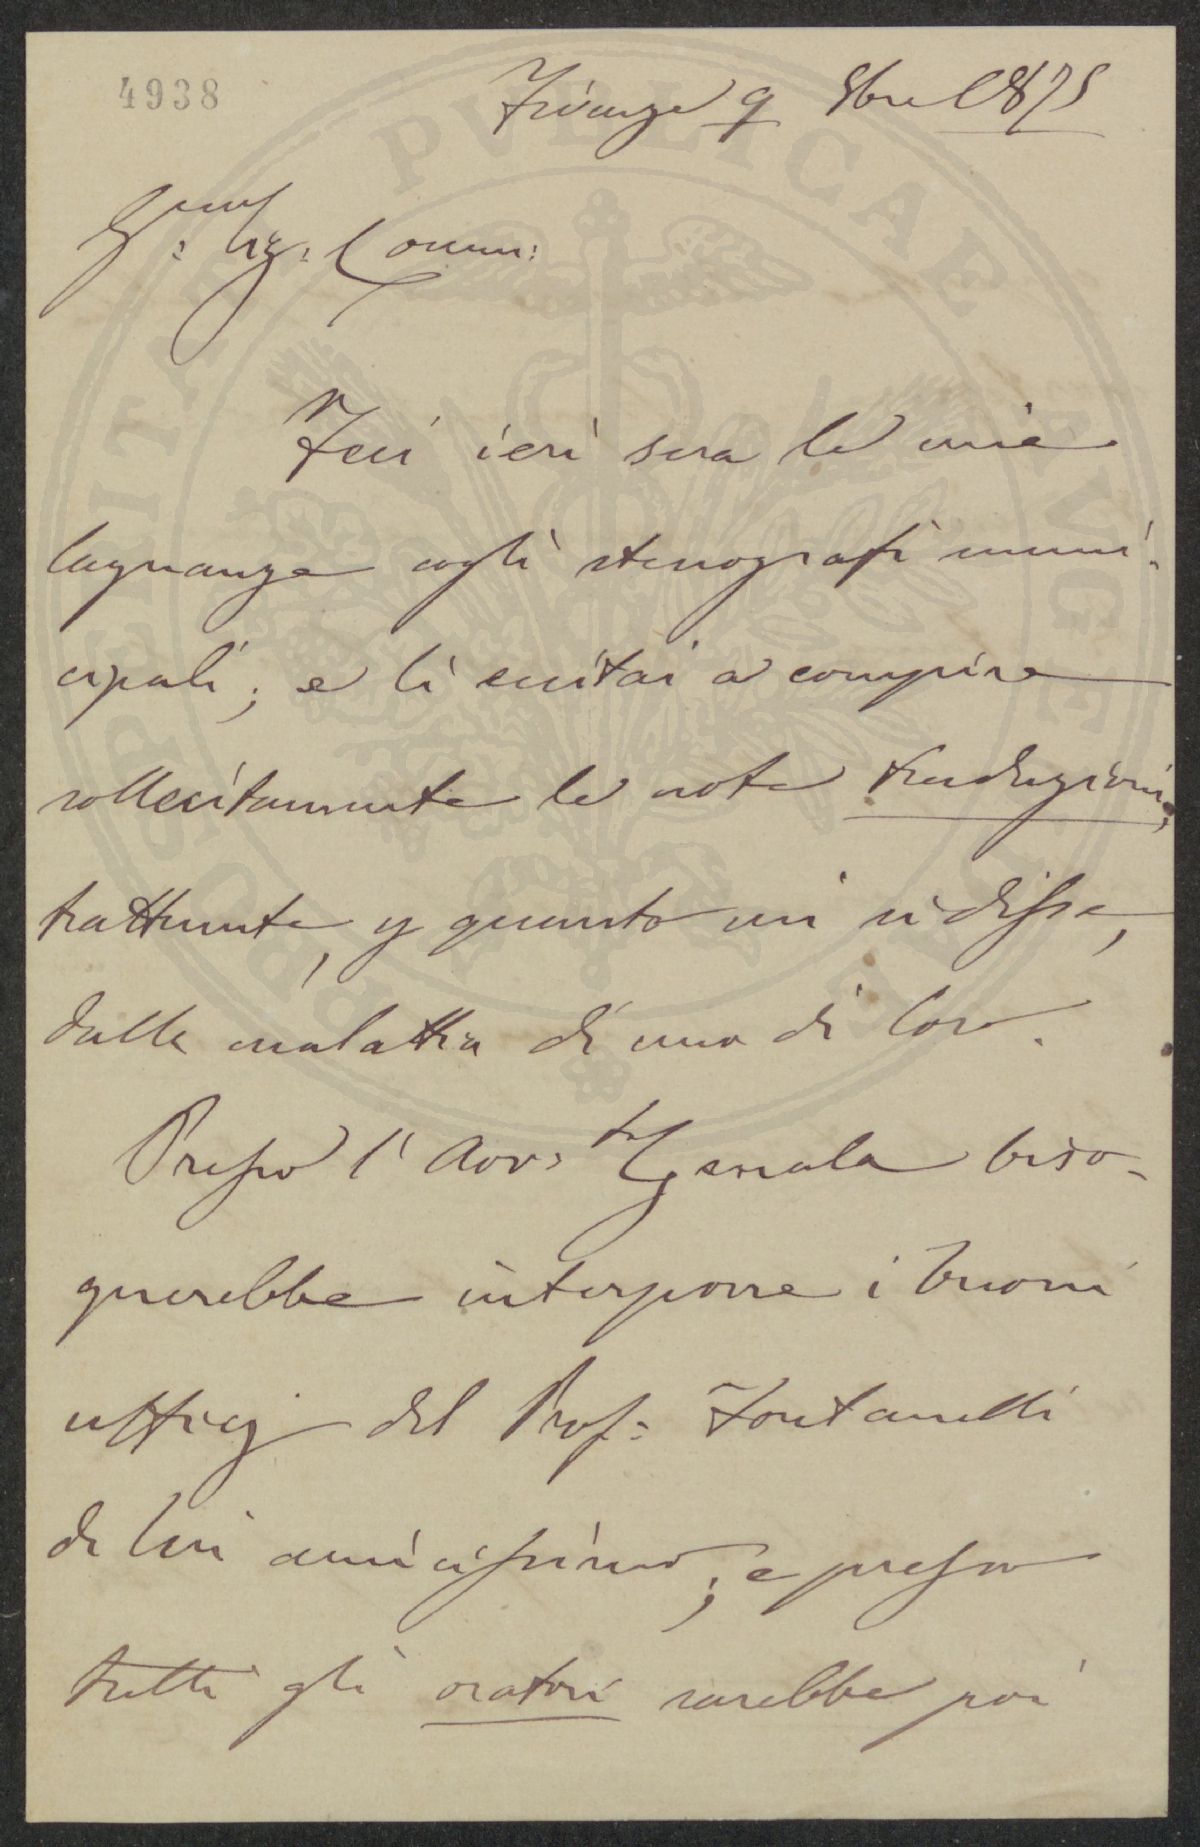 4938
Firenze 9 8bre 1875
Sig: Comm:
Feci ieri sera le mie
lagnanze cogli stenografi muni-
cipali; e li eccitai a compire
sollecitamente le note traduzioni,
trattenute, p quanto mi si disse,
dalla malattia di uno di loro.
Presso l'Avv: Genala biso-
gnerebbe interporre i buoni
ufficj del Prof: Fontanelli
di lui amicissimo; e presso
tutti gli oratori sarebbe poi